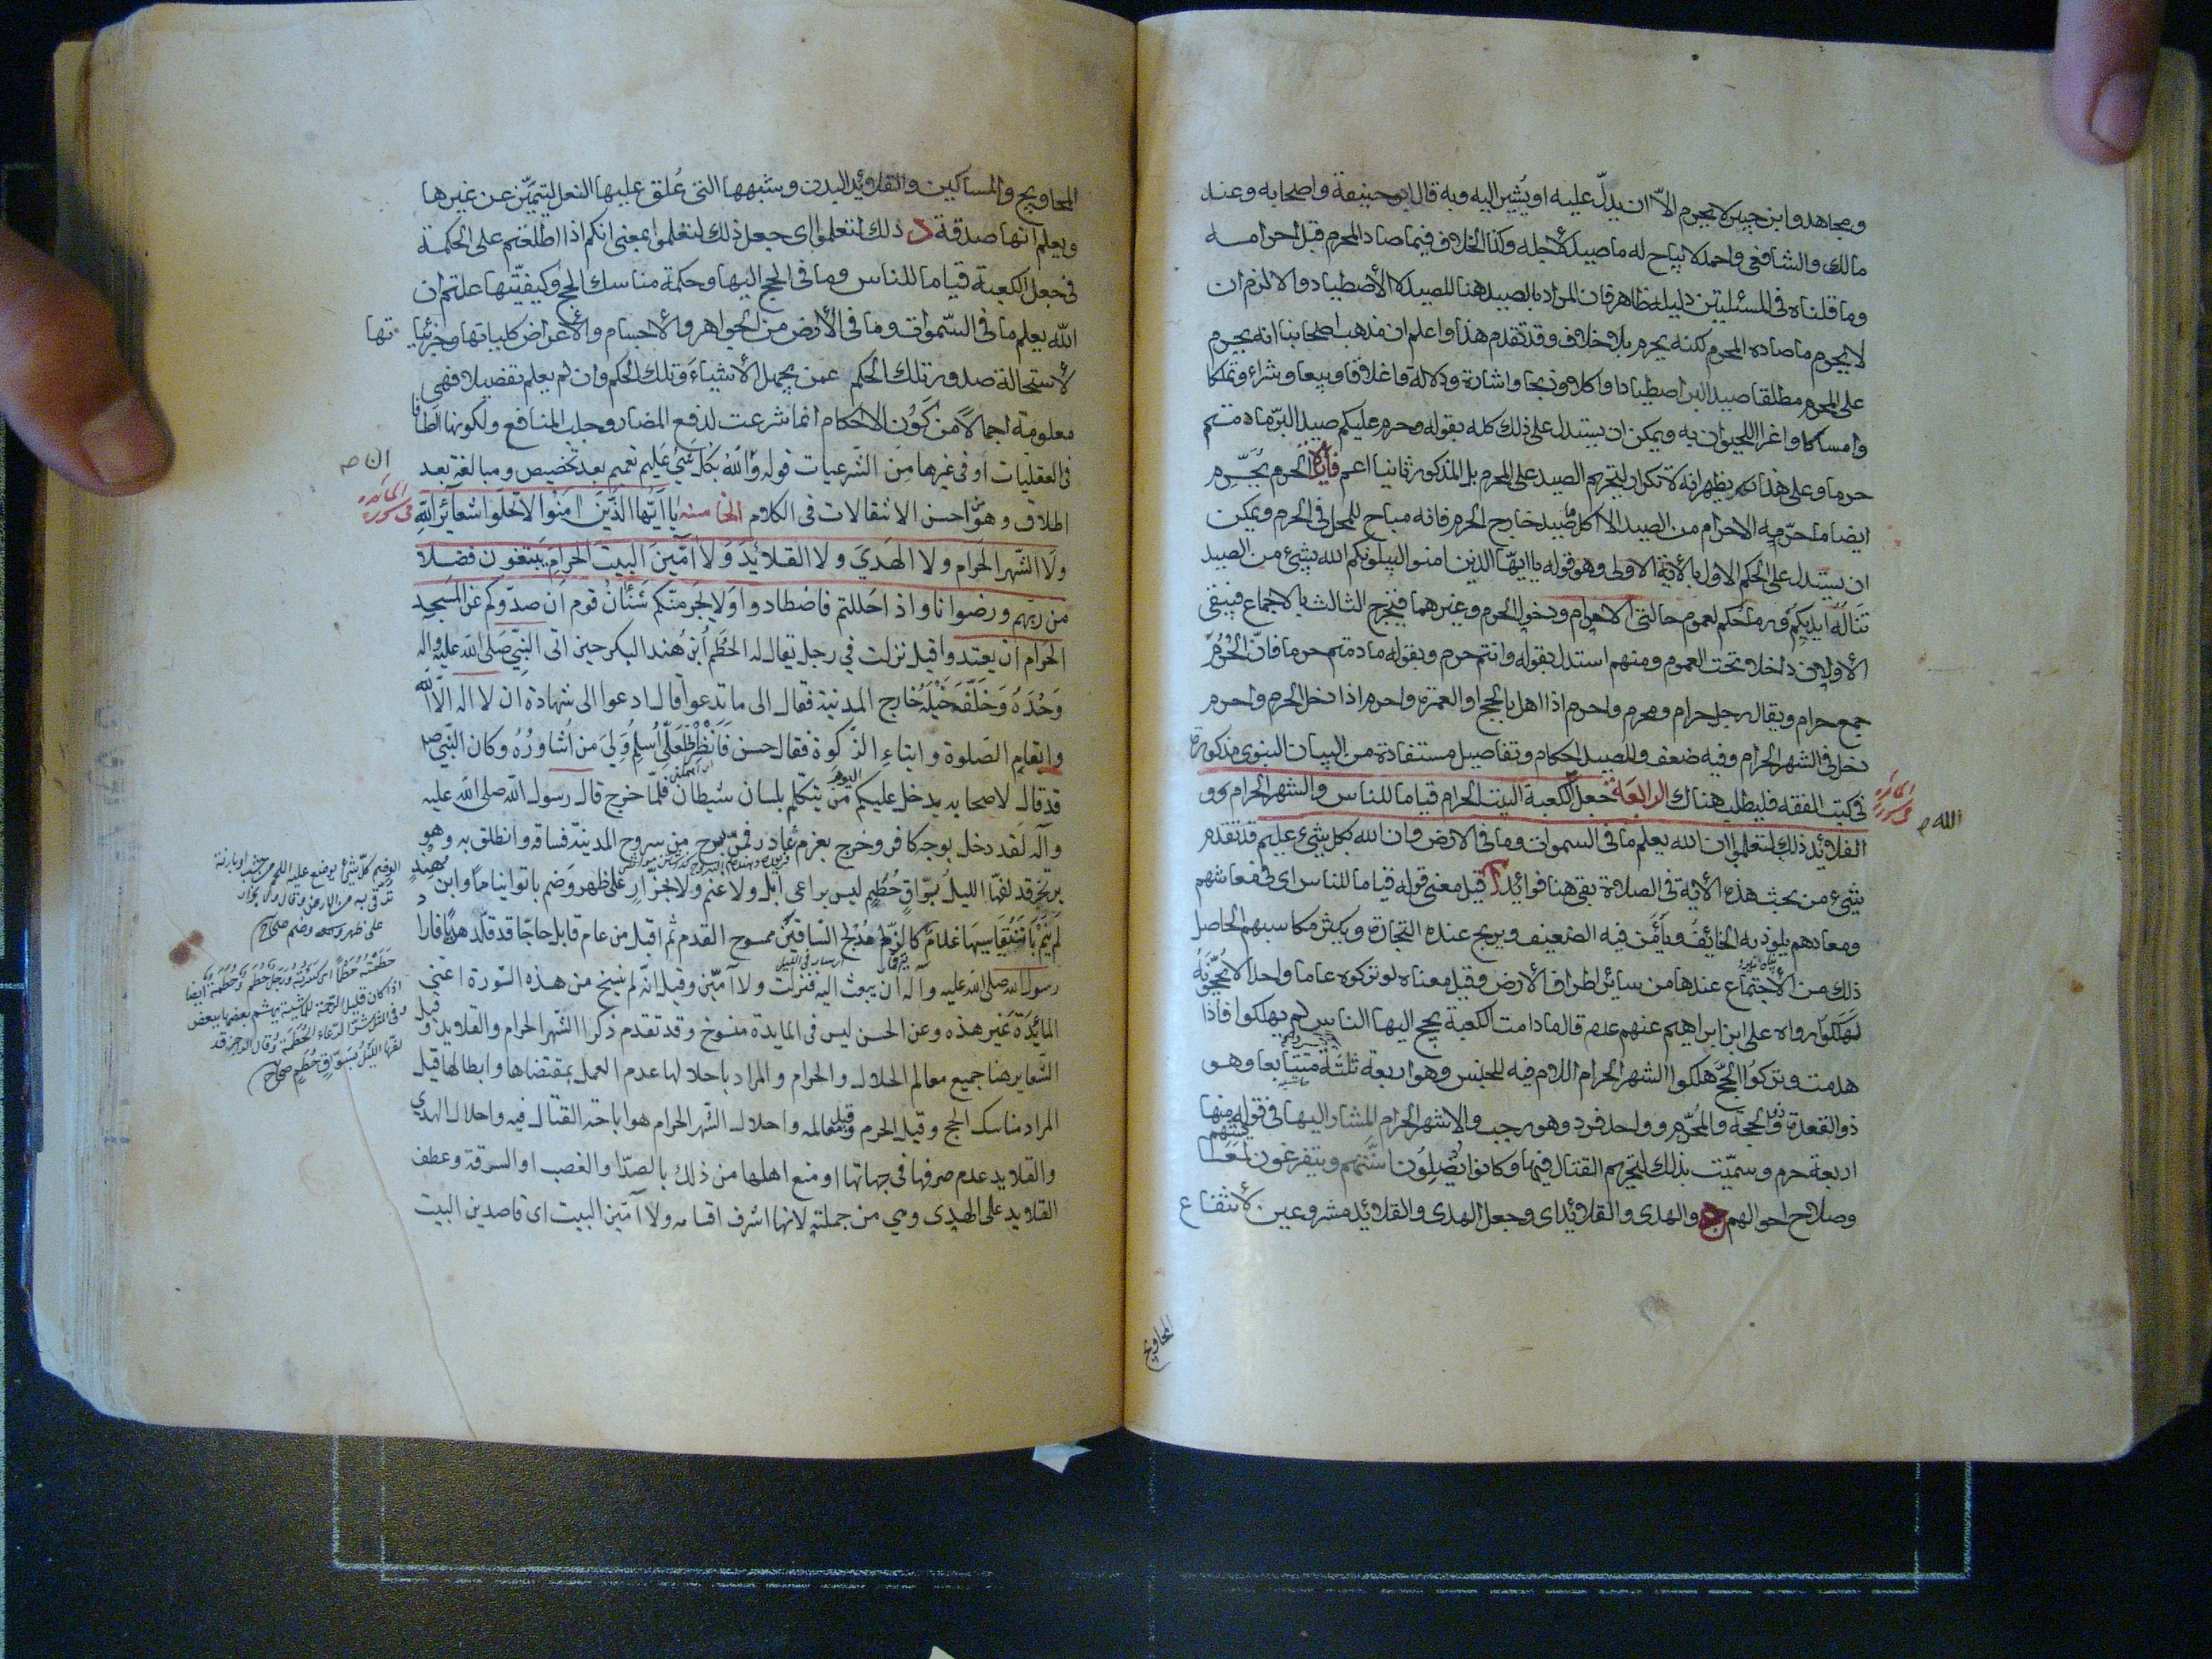 ومجاهد وابن جبير لا يحرم الاّ ان يدلّ عليه او يُشير اليه وبه قال ابو حنيفة واصحابه وعند
مالك والشافعى واحمد لا يباح له ما صيد لأجله وكذا الخلاف فيما صاد المحرم قبل احرامه
وما قلناه فى المسئلتين دليله ظاهر فان المراد بالصيد هنا المصيد لا الأصطياد والا لزم ان
لا يحرم ما صاده المحرم لكنه يحرم بلا خلاف وقد تقدم هذا واعلم ان مذهب اصحابنا انه يحرم
على المحرم مطلقا صيد البر اصطيادا واكلا وذبحا واشارة ودلالة واغلاقا وبيعا وشراء وتملكا
وامساكا واغراء للحيوان به ويمكن ان يستدل على ذلك كله بقوله وحرم عليكم صيد البرّ ما دمتم
حرما وعلى هذا يظهر انه لا تكرار لتحريم الصيد على المحرم بل المذكور ثانيا اعم فائدة الحرم يُحَرّم
ايضا ما حرّمه الاحرام من الصيد الا اكل ما صيد خارج الحرم فانه مباح للمحل فى الحرم ويمكن
ان يستدل على الحكم الاول بالآية الاولى وهو قوله يا ايهّا الذين امنوا ليبلونكم الله بشئ من الصيد
تَنَالُهُ ايديكم ورماحكم لعموم حالتى الاحرام ودخول الحرم وغيرهما فيخرج الثالث بالاجماع فيبقى
الأولان داخلا تحت العموم ومنهم استدل بقوله وانتم حرم وبقوله ما دمتم حرما فانّ الحُرُمَ
جمع حرام ويقال رجل حرام ومحرم واحرم اذا اهل بالحج او العمرة واحرم اذا دخل الحرم واحرم
دخل فى الشهر الحرام وفيه ضعف وللصيد احكام وتفاصيل مستفادة من البيان النبوى مذكورة
فى كتب الفقه فليطلب هناك الرابعة جعل الكعبة البيت الحرام قياما للناس والشهر الحرام و
القلائد ذلك لتعلموا ان الله يعلم ما فى السموات وما فى الارض وان الله بكل شئ عليم قد تقدم
شئ من بحث هذه الآية فى الصلاة بقى هنا فوائد آ قيل معنى قوله قياما للناس اى فى معاشهم
ومعادهم يلوذ به الخائف ويأمن فيه الضعيف ويربح عنده التجارة ويكثر مكاسبهم الحاصل
ذلك من الأجتماع عندها من سائر اطراف الأرض وقيل معناه لو تركوه عاما واحدا لا يحجّونهُ
لهلكوا رواه على ابن ابراهيم عنهم قال ما دامت الكعبة يحج اليها الناس لم يهلكوا فاذا
هدمت وتركوا الحجّ هلكوا الشهر الحرام اللام فيه للجنس وهو اربعة ثلثة متتابعا وهو
ذو القعدة وذو الحجة والمحرّم وواحد فرد وهو رجب والاشهر الحرام المشار اليها فى قوله منها
اربعة حرم وسمّيت بذلك لتحريم القتال فيها وكانوا يُنْصِلُون اسنّتهم ويتفرغون لمعايشهم
وصلاح احوالهم ج والهدى والقلائد اى وجعل الهدى والقلائد مشروعين لأنتفاع
الله
فى سورة المائدة
المحاويج
المحاويج والمساكين والقلائد البدن وشبهها التى عُلق عليها النعل ليتميّز عن غيرها
ويعلم انها صدقة د ذلك لتعلموا اى جعل ذلك لتعلموا بمعنى انكم اذا اطلعتم على الحكمة
فى جعل الكعبة قياما للناس وما فى الحج اليها وحكمة مناسك الحج وكيفيّتها علمتم ان
الله يعلم ما فى السّموات وما فى الأرض من الجواهر والاجسام والأعراض كلياتها وجزئياتها
لأستحالة صدور تلك الحكم عمن يجهل الأشياء وتلك الحكم وان لم يعلم تفصيلا فهى
معلومة اجمالاً من كون الاحكام انما شرعت لدفع المضار وجلب المنافع ولكونها الطافا
فى العقليات او فى غيرها من الشّرعيات قوله والله بكل شئ عليم تعميم بعد تخصيص ومبالغة بعد
اطلاق وهو احسن الانتقالات فى الكلام الخامسة يا ايّها الذّين امنوا لا تحلّوا شعآئر الله
ولا الشّهر الحرام ولا الهدي ولا القلائد ولا آمّين البيت الحرام يبتغون فضلا
من ربّهم ورضوانا واذا حللتم فاصطادوا ولا يجرمنّكم شنئان قوم ان صدّوكم عن المسجد
الحرام ان يعتدوا قيل نزلت في رجل يقال له الحُطَم بن هند البكر حين اتى النبّي صلى الله عليه واله
وحده وخلّف خيله خارج المدينة فقال الى ما تدعوا قال ادعوا الى شهادة ان لا اله الاّ الله
واقام الصّلوة وايتاء الزكوة فقال حسن فانظر لعلّى اُسلم ولي من اُشاورُه وكان النبّي ص
قد قال لاصحابه يدخل عليكم اليوم من يتكلّم بلسان شيطان فلمّا خرج قال رسول الله صلى الله عليه
وآله لقد دخل بوجه كافر وخرج بعزم غادر فمرّ بسرح من سروح المدينة فساقه وانطلق به وهو
يرتجز قد لفّها الليل بسوّاقٍ حُطَمٍ ليس براعى ابل ولا غنم ولا بجزّارٍ على ظهر وضم باتوا نياماً وابن هند
لم ينم بات يقاسيها غلامٌ كالزلم خدلج السّاقين ممسوح القدم ثم اقبل من عام قابل حاجّا قد قلّد هدياً فاراد
رسول الله صلى الله عليه وآله ان يبعث اليه فنزلت ولا آمّين وقيل انّه لم ينسخ من هذه السّورة اعنى
المائدة غير هذه وعن الحسن ليس فى المايدة منسوخ وقد تقدم ذكر الشّهر الحرام والقلايد و قيل
الشّعاير هنا جميع معالم الحلال والحرام والمراد باحلالها عدم العمل بمقتضاها وابطالها قيل
المراد مناسك الحج وقيل الحرم وقيل معالمه واحلال الشّهر الحرام هو اباحة القتال فيه واحلال الهدي
والقلايد عدم صرفها فى جهاتها او منع اهلها من ذلك بالصدّ او الغصب او السرقة وعطف
القلايد على الهدى وهي من جملته لانها اشرف اقسامه ولا آمّين البيت اى قاصدين البيت
فى سورة المائدة
الوضم كلّ شئ يوضع عليه اللحم من خشب او بارية
يوقى به من الارض وقال ولا بجزّار
على ظهر وضم صحاح
حطمته حطماً اى كسرته ورجل حُطَم وحُطَمة ايضا
اذا كان قليل الرّحمة للماشية يهشم بعضها ببعض
وفى المثل شرّ الرّعاء الحُطَمة وقال الراجز قد
لفّها الليل بسوّاقٍ حُطَمٍ صحاح